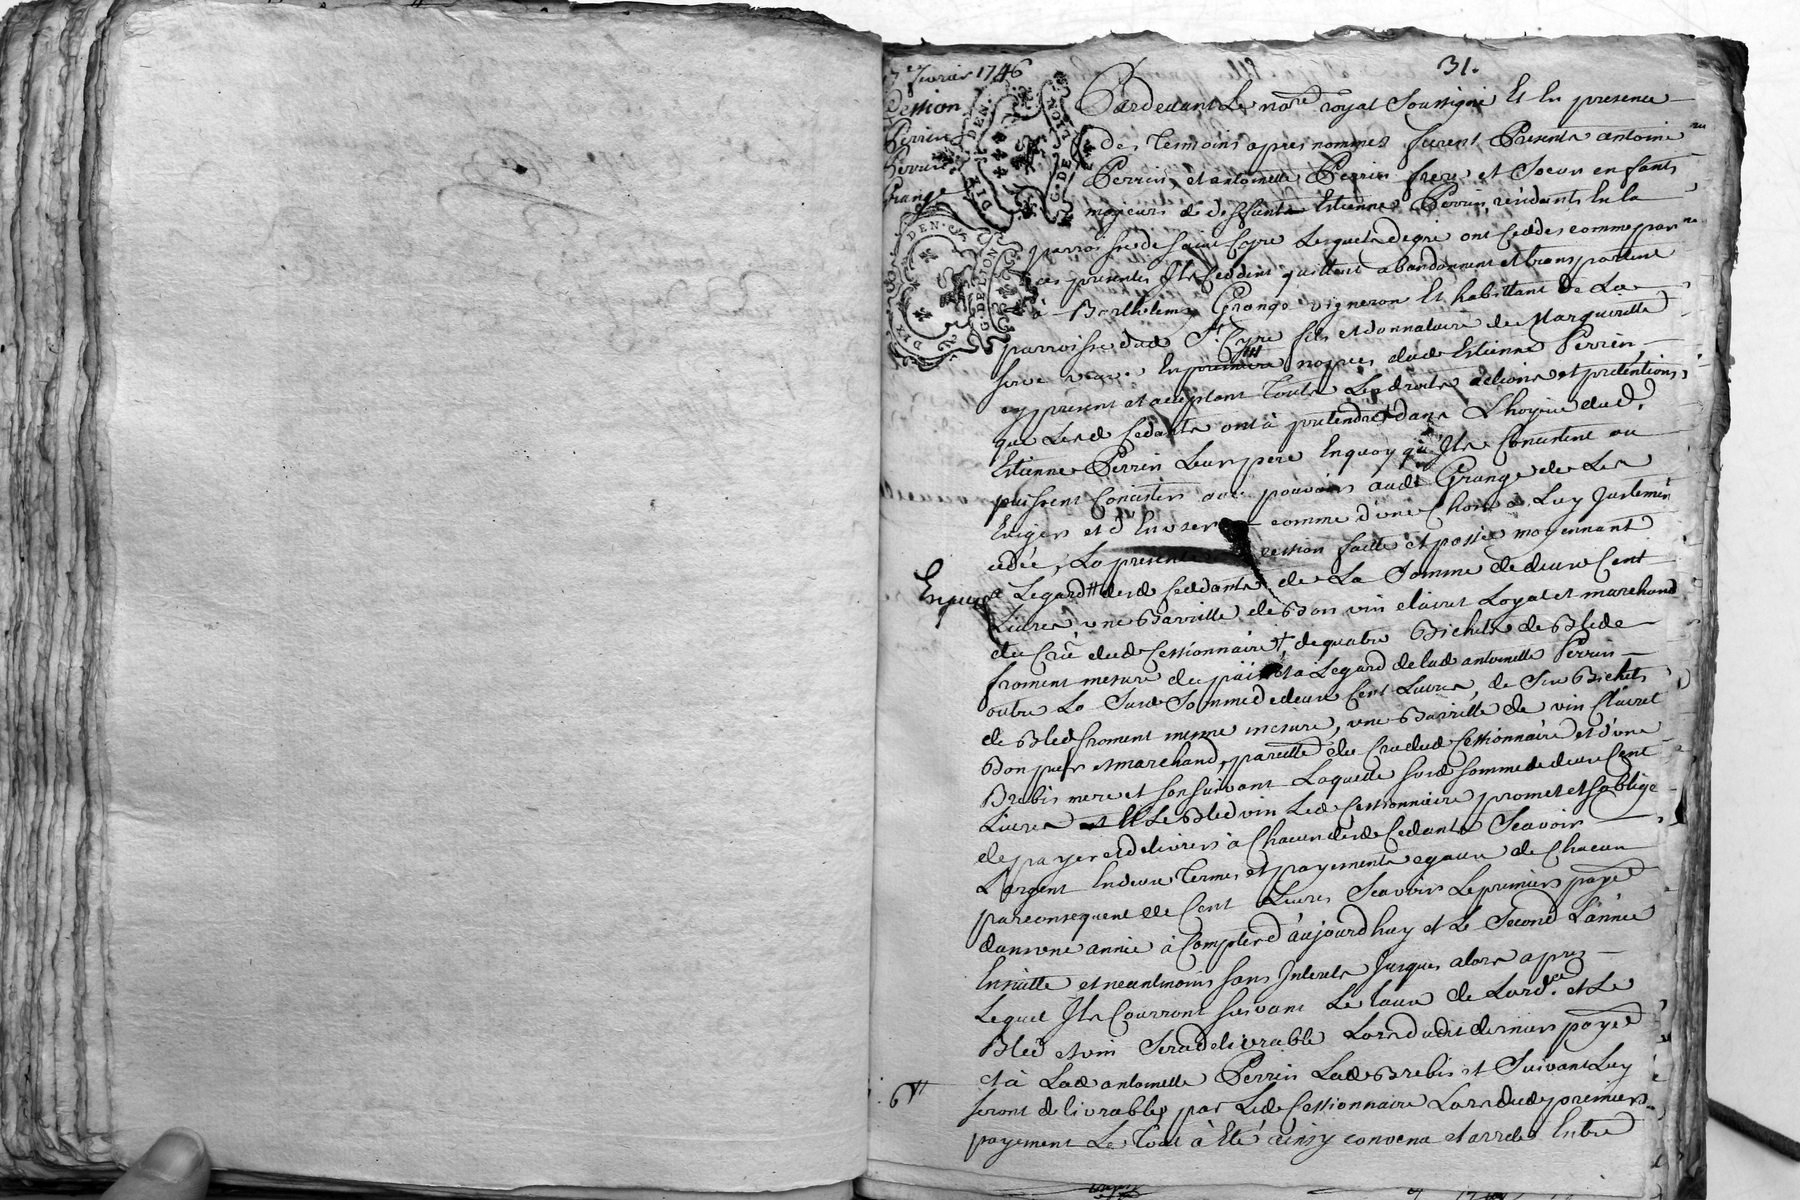 7 fevrier 1746
Cession
Perrin
Perrin
Grange
31.
Pardevant Le nore royal Soussigné Et En presence
des Temoins apres nommez furent Presents antoine
Perrin, et antoinette Perrin frere et Soeur enfants
majeurs de deffunt Estienne Perrin, residents En la
parroisse de Saint Cyre Lesquels de gré ont Ceddés comme par
ces presentes Ils Ceddent quittent abandonnent et transportent
à Barthelemy Grange vigneron Et habittant de La
parroisse dud St. Cyre fils et donnataire de
veuve En nopces dud Estienne Perrin,
cy present et acceptant Touts Les droits actions et pretentions
que Lesd Cedants ont à pretendre dans L'hoyrie dud.
Estienne Perrin Leur pere En quoy qu'Ils Concistent ou
puissent Concister avec pouvoir audt Grange de Les
Exiger et d'En user comme d'une Chose à Luy Justemen
cedée, La presente cession faitte et passée moyennant
a Legard desd Ceddants de La Somme de deux Cent
Livres une Barrille de Bon vin clairet Loyal et marchand
du Crû dud Cessionnaire, de quatre Bichets de Bled
froment mesure du païs et à Legard de lad antoinette Perrin
outre La Susd Somme de deux Cent Livres, de Six Bichets
de Bled froment meme mesure, une Barrille de vin Clairet
Bon pur et marchand, pareille du Cru dud Cessionnaire et d'une
Brebis mere et son suivant Laquelle susd somme de deux Cent
Livres Et Le Bled vin Led Cessionnaire promet et s'oblige
de payer et delivrer à Chacun desd Cedants Scavoir
L'argent En deux Termes et payements egaux de Chacun
par consequent de Cent Livres Scavoir Le premier payet
dans une année à Compter d'aujourd'huy et Le Second L'année
Ensuitte et neantmoins sans Interets Jusques alors apres
Lequel Ils Courront suivant Le taux de Lord.ce et Le
Bled et vin Sera delivrable Lors dudit dernier payet
et à Lad antoinette Perrin Lad Brebis et Suivant Luy
seront delivrables par Led Cessionnaire Lors dud premier
payement Le Tout à Eté ainsy convenu et arreté Entre
6